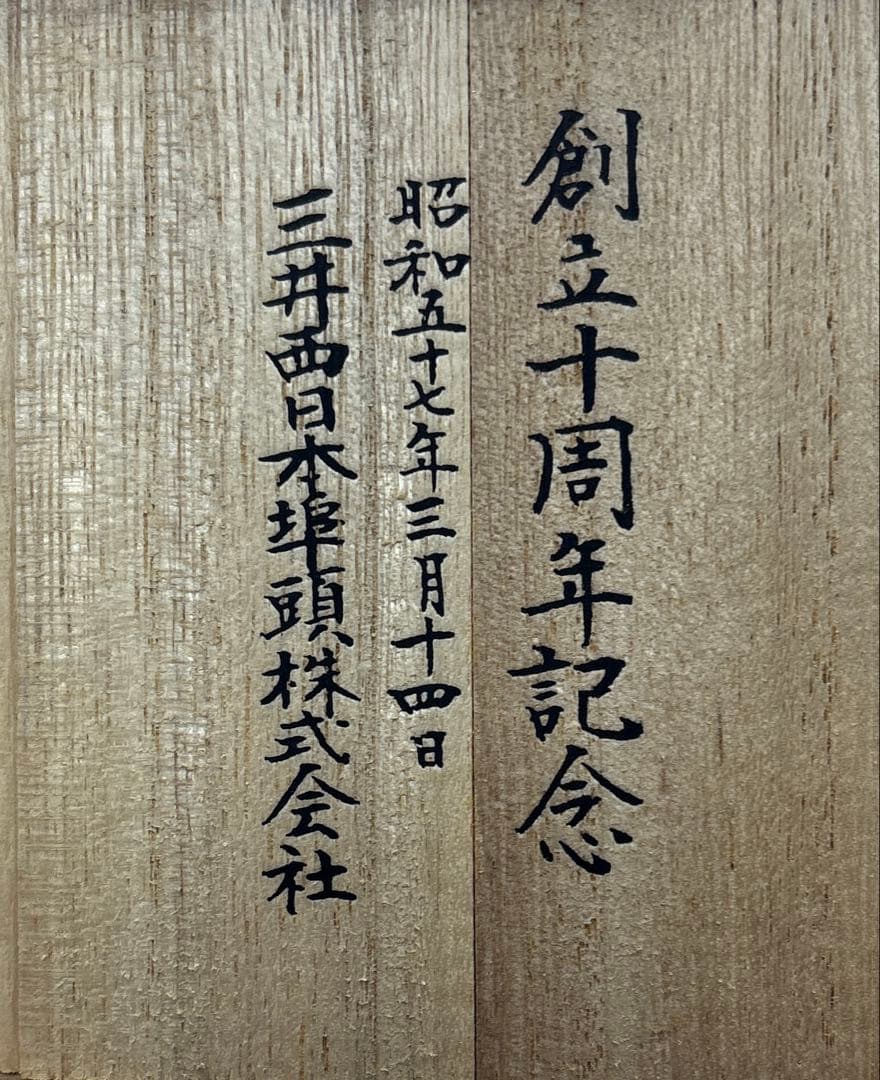 創立十周年記念
昭和五十七年三月十四日
三井西日本埠頭株式会社